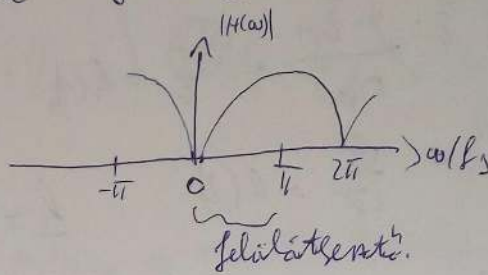 |H(ω)|
-π 0 π 2π ω(f
felüláteresztő.